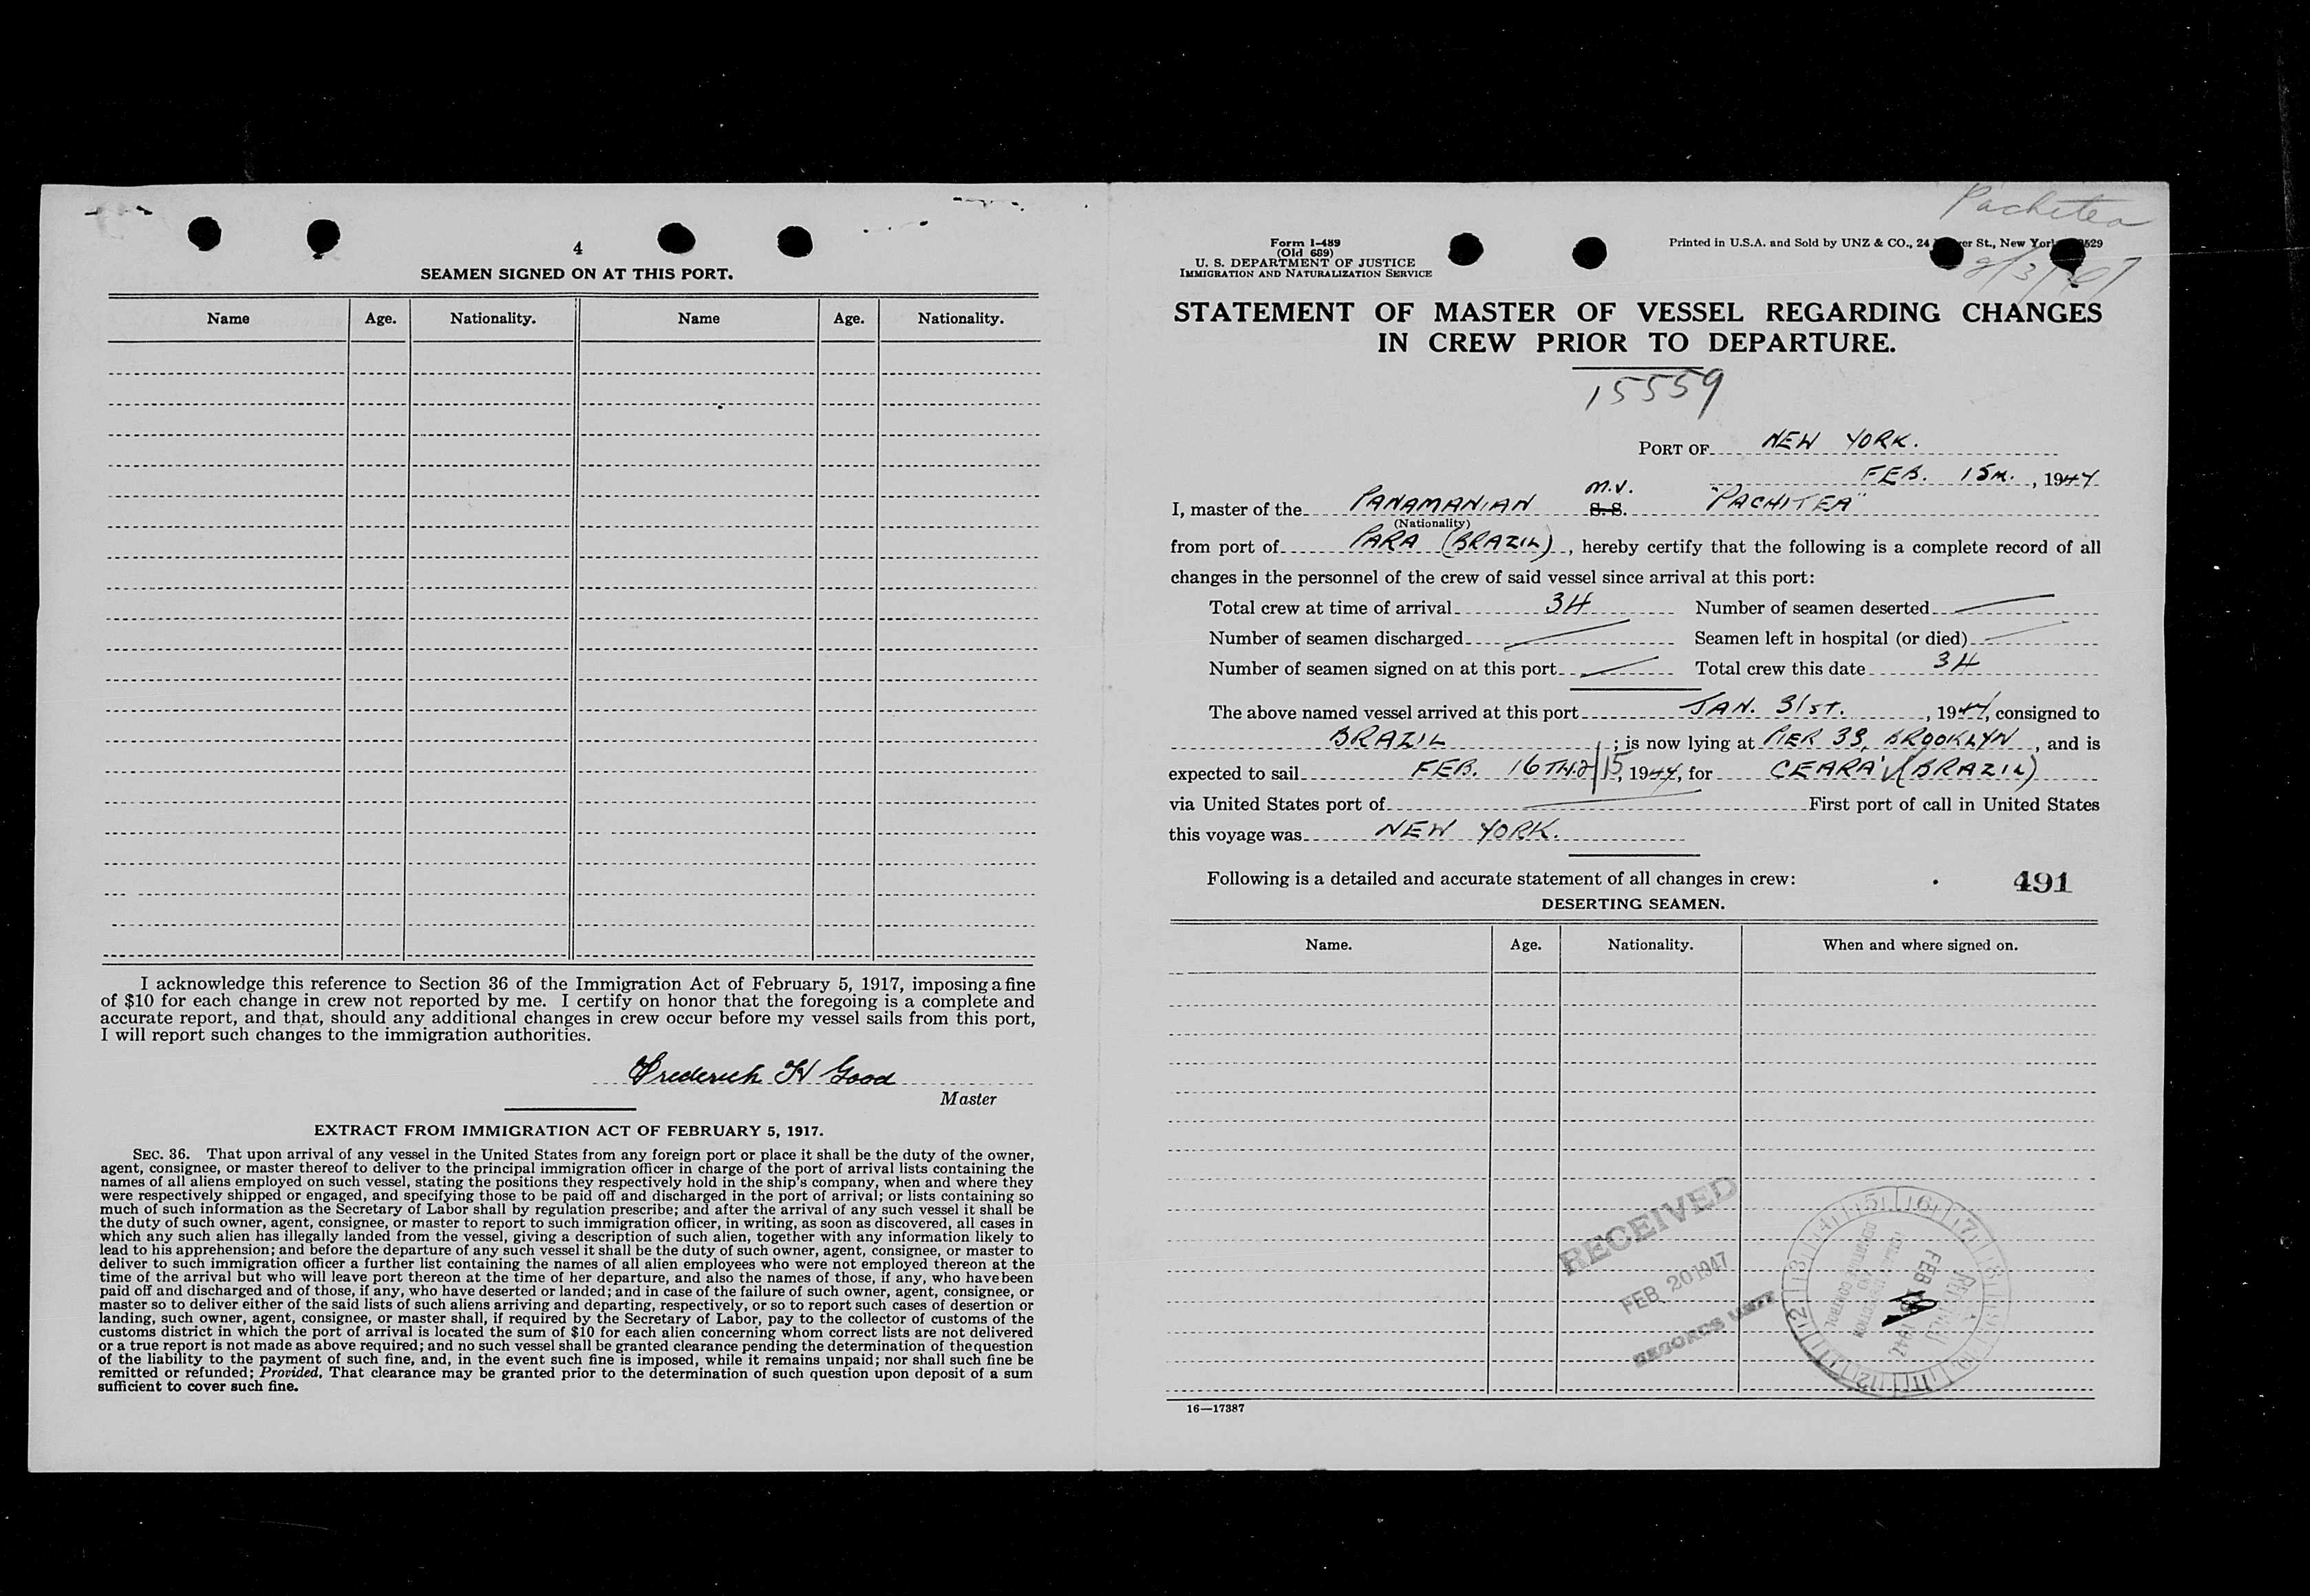 4
SEAMEN SIGNED ON AT THIS PORT.
Name Age. Nationality. Name Age. Nationality.
I acknowledge this reference to Section 36 of the Immigration Act of February 5, 1917, imposing a fine
of $10 for each change in crew not reported by me. I certify on honor that the foregoing is a complete and
accurate report, and that, should any additional changes in crew occur before my vessel sails from this port,
I will report such changes to the immigration authorities.
Frederick H Good
Master
EXTRACT FROM IMMIGRATION ACT OF FEBRUARY 5, 1917.
SEC. 36. That upon arrival of any vessel in the United States from any foreign port or place it shall be the duty of the owner,
agent, consignee, or master thereof to deliver to the principal immigration officer in charge of the port of arrival lists containing the
names of all aliens employed on such vessel, stating the positions they respectively hold in the ship's company, when and where they
were respectively shipped or engaged, and specifying those to be paid off and discharged in the port of arrival; or lists containing so
much of such information as the Secretary of Labor shall by regulation prescribe; and after the arrival of any such vessel it shall be
the duty of such owner, agent, consignee, or master to report to such immigration officer, in writing, as soon as discovered, all cases in
which any such alien has illegally landed from the vessel, giving a description of such alien, together with any information likely to
lead to his apprehension; and before the departure of any such vessel it shall be the duty of such owner, agent, consignee, or master to
deliver to such immigration officer a further list containing the names of all alien employees who were not employed thereon at the
time of the arrival but who will leave port thereon at the time of her departure, and also the names of those, if any, who have been
paid off and discharged and of those, if any, who have deserted or landed; and in case of the failure of such owner, agent, consignee, or
master so to deliver either of the said lists of such aliens arriving and departing, respectively, or so to report such cases of desertion or
landing, such owner, agent, consignee, or master shall, if required by the Secretary of Labor, pay to the collector of customs of the
customs district in which the port of arrival is located the sum of $10 for each alien concerning whom correct lists are not delivered
or a true report is not made as above required; and no such vessel shall be granted clearance pending the determination of the question
of the liability to the payment of such fine, and, in the event such fine is imposed, while it remains unpaid; nor shall such fine be
remitted or refunded; Provided, That clearance may be granted prior to the determination of such question upon deposit of a sum
sufficient to cover such fine.
Pachitea
Form I-489
(Old 689)
U. S. DEPARTMENT OF JUSTICE
IMMIGRATION AND NATURALIZATION SERVICE
Printed in U.S.A. and Sold by UNZ & CO., 24 St., New York
STATEMENT OF MASTER OF VESSEL REGARDING CHANGES
IN CREW PRIOR TO DEPARTURE.
15559
PORT OF NEW YORK.
FEB. 15th., 1947
I, master of the PANAMANIAN M.V. S. S. "PACHITEA"
(Nationality)
from port of PARA (BRAZIL), hereby certify that the following is a complete record of all
changes in the personnel of the crew of said vessel since arrival at this port:
Total crew at time of arrival 34 Number of seamen deserted
Number of seamen discharged Seamen left in hospital (or died)
Number of seamen signed on at this port Total crew this date 34
The above named vessel arrived at this port JAN. 31ST., 1947, consigned to
BRAZIL; is now lying at PIER 33, BROOKLYN, and is
expected to sail FEB. 16TH. 2/15, 1947, for CEARA' (BRAZIL)
via United States port of First port of call in United States
this voyage was NEW YORK.
Following is a detailed and accurate statement of all changes in crew: 491
DESERTING SEAMEN.
Name. Age. Nationality. When and where signed on.
RECEIVED
FEB 20 1947
RECORDS UNIT
16—17387